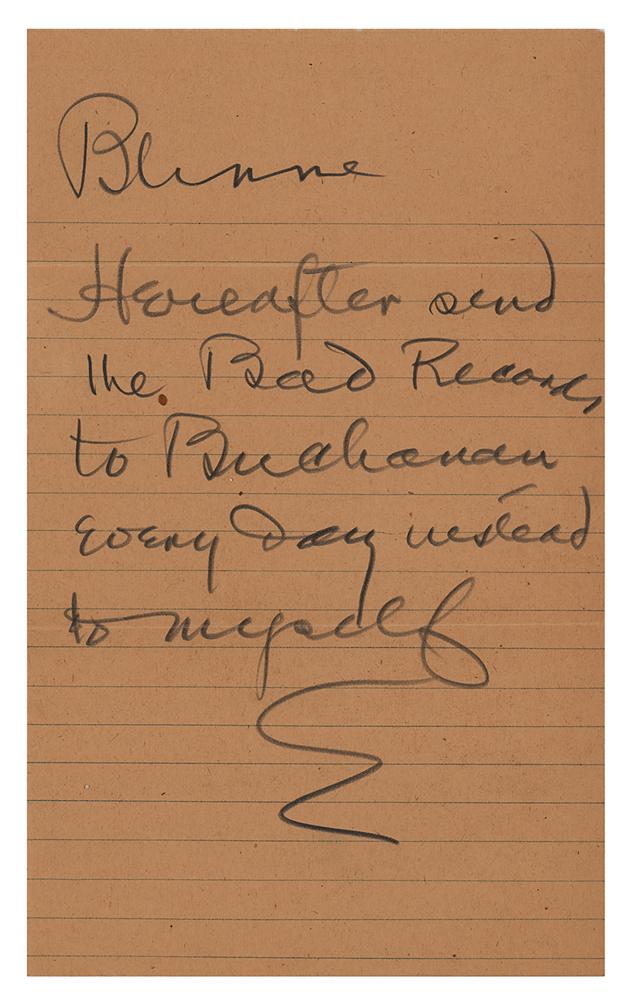 Blinne
Hereafter send
the Bad Records
to Buchanan
Every Day instead
to myself
E